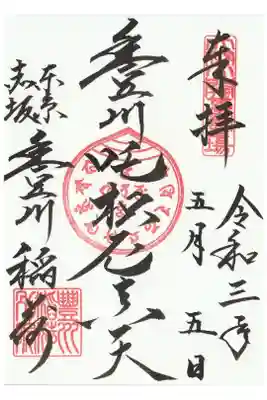 奉拝
令和三年
五月五日
豊川吒枳尼真天
東京
赤坂
豊川稲荷